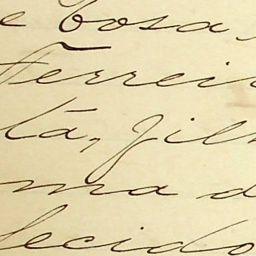 e Cosa
Ferrei
tá, fil
ma d
lecido